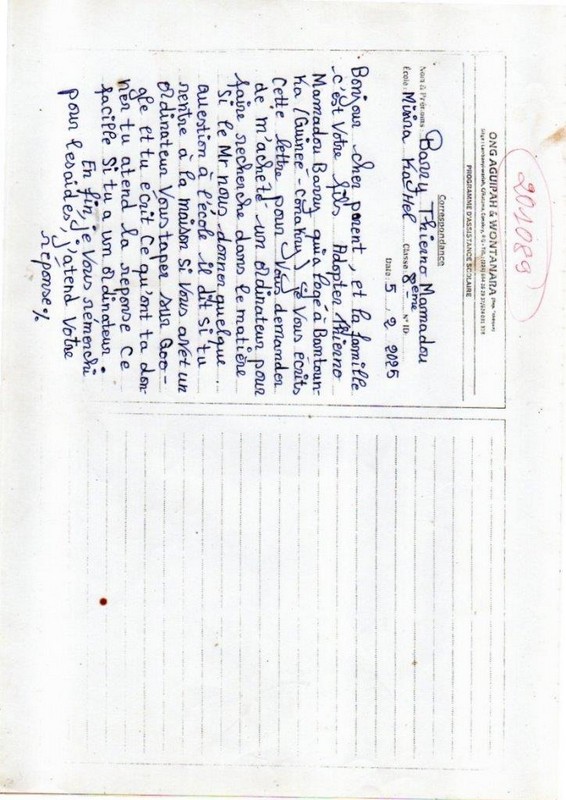 201089
ONG AGUIPAH & WONTANARA
PROGRAMME D'ASSISTANCE SCOLAIRE
Correspondance
Nom & Prénoms Barry Thierno Mamadou
École: Mixina Kathel Classe 8 8ème N° ID:
Date 5 . 2 2025
Bonjour cher parent, et la famille
c'est Votre fils Adopter Thierno
Mamadou Barry qui a logé à Bantoun-
Ka (Guinée-conakry) Vous ecrits
Cette lettre pour Vous demander
de m'acheté un ordinateur pour
faire recherche dans le matière
Si le Mr nous, donner quelque
question à l'école Il dit Si tu
rentre à la maison Si Vous avet un
ordinateur Vous taper sur Goo-
gle et tu ecrit Ce qu'ont ta don-
ner tu atend la reponse Ce
facille Si tu a un ordinateur.
En fin, je Vous remerchi
pour les aides, j'attend Votre
reponse%